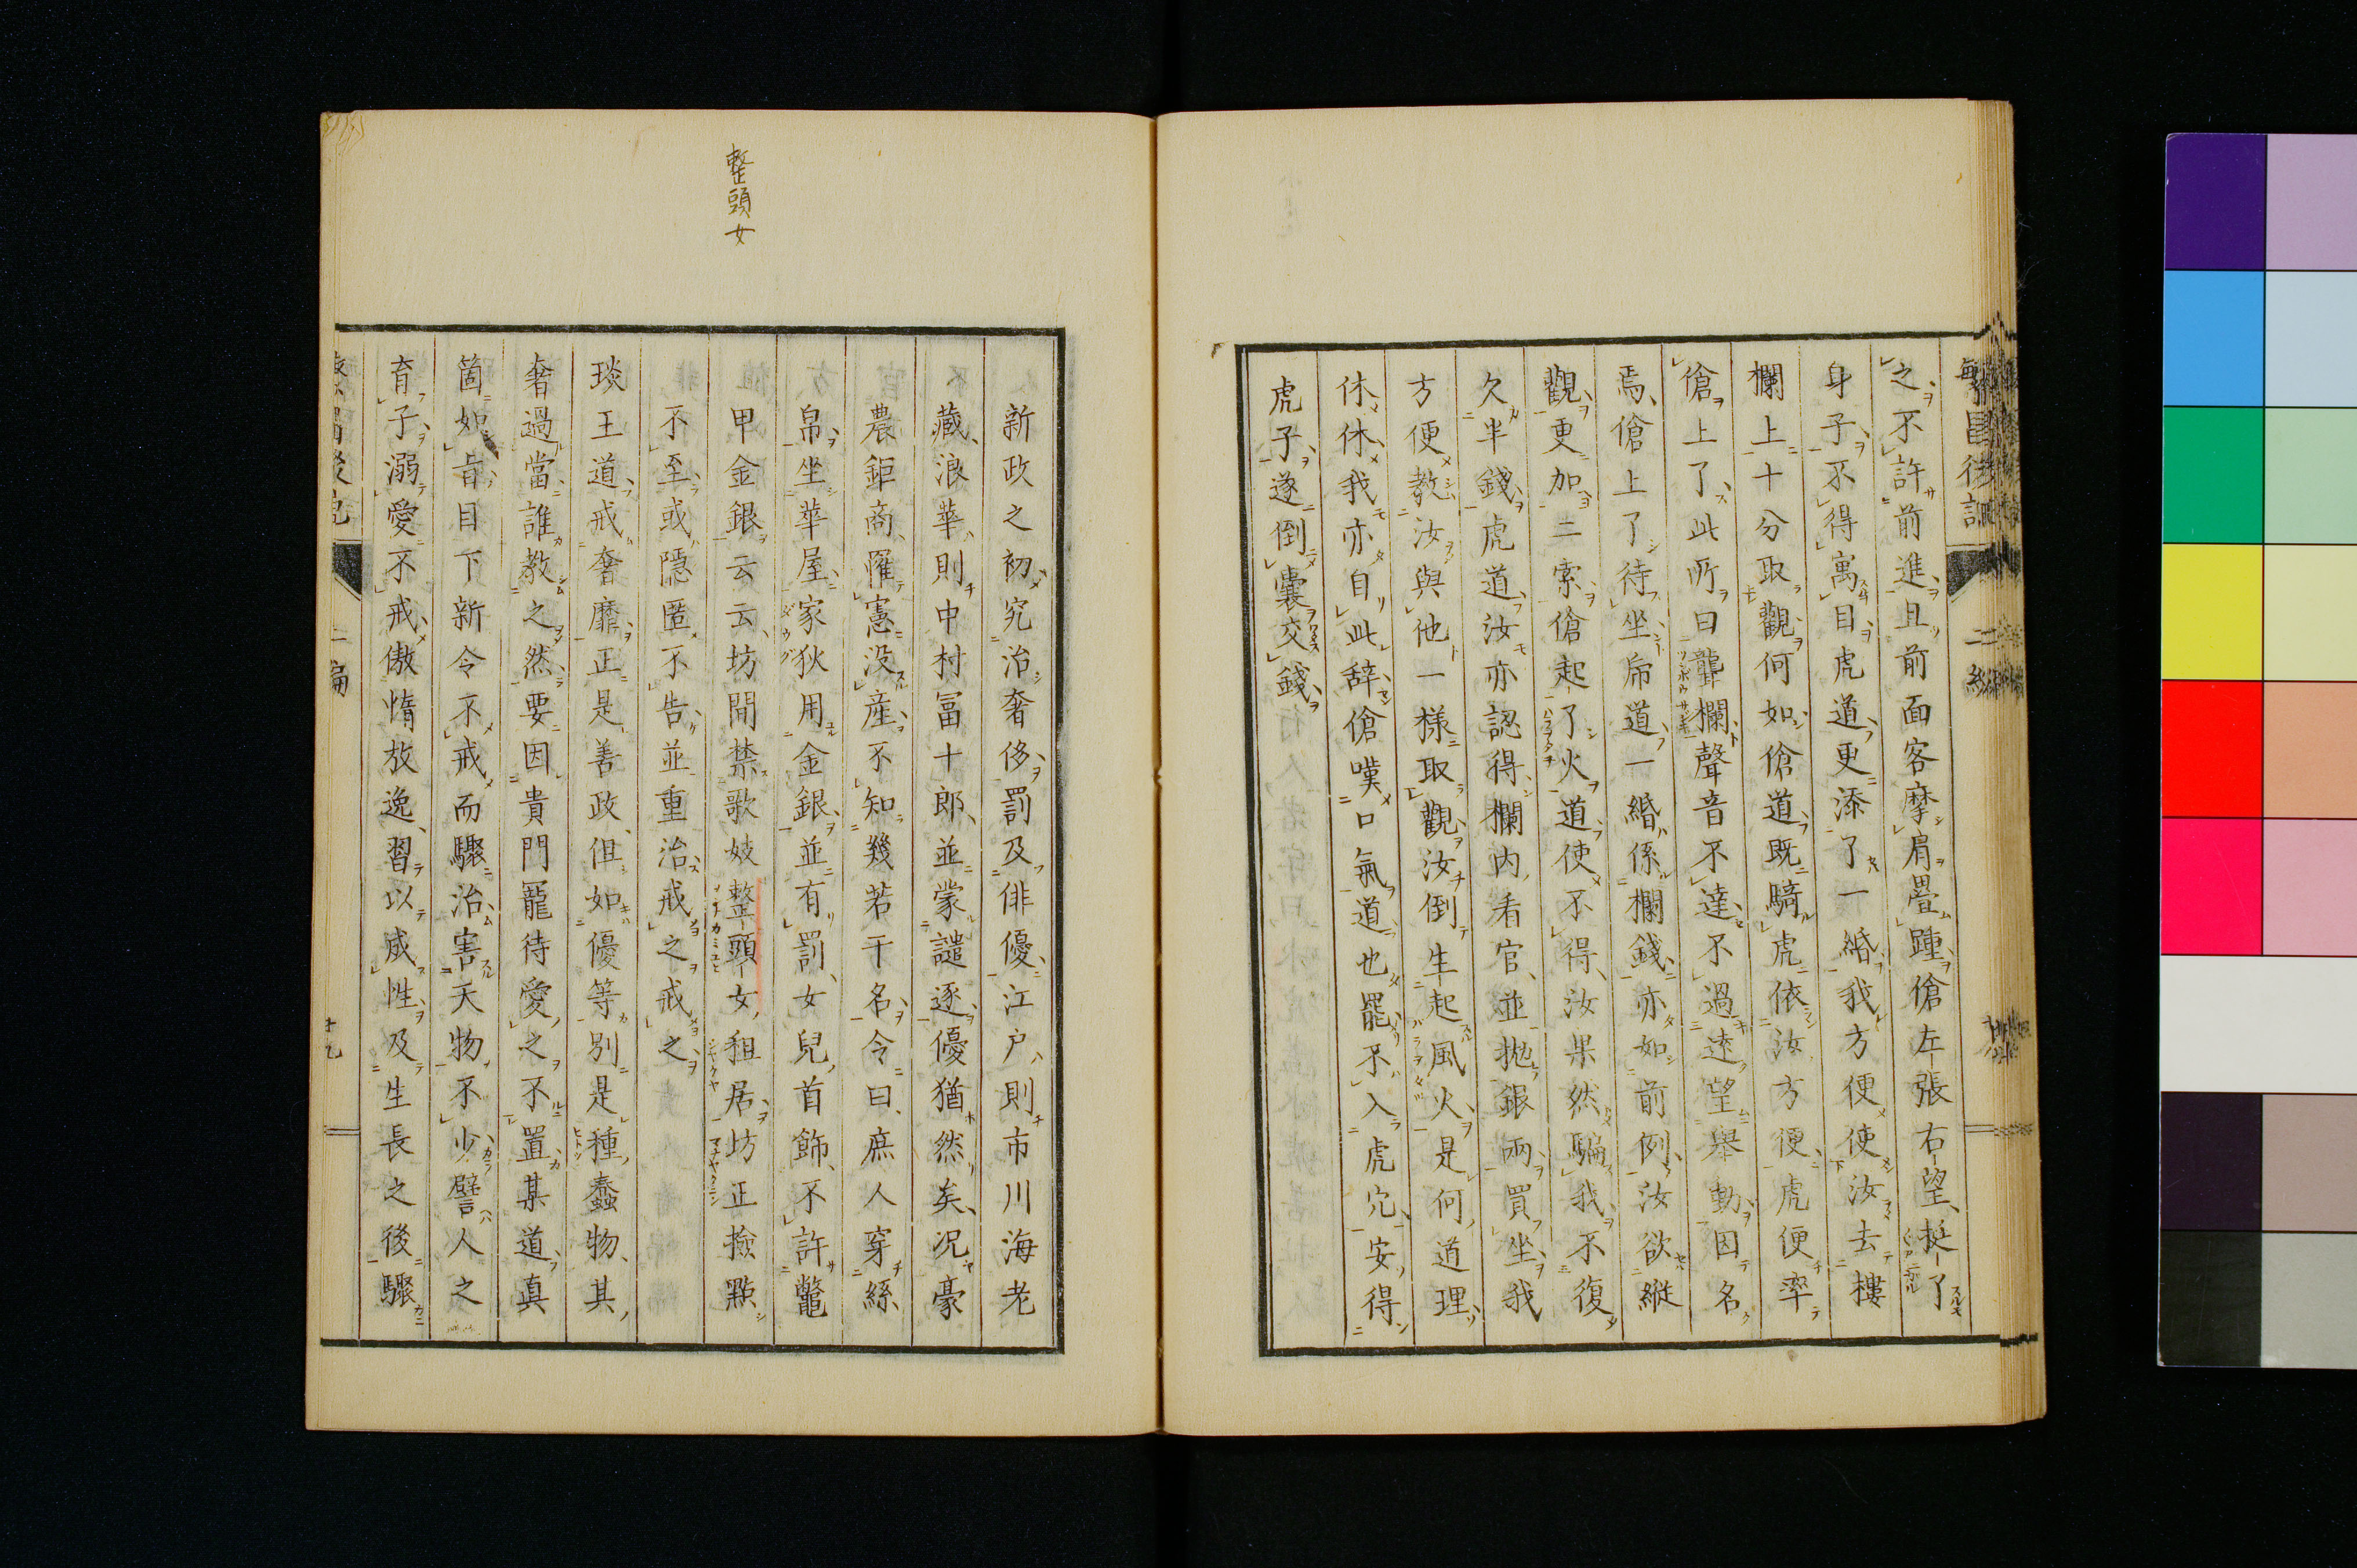 之不許前進且前面客摩肩疊踵傖左張右望挺了
身子不得寓目虎道更添了一緡我方便使汝去樓
欄上十分取觀何如傖道既騎虎依汝方便虎便率
傖上了此所曰聾欄聲音不達不過遠望舉動因名
焉傖上了待坐席道一緡係欄錢亦如前例汝欲縱
觀更加二索傖起了火道使不得汝果然騙我不復
久半錢虎道汝亦認得欄内看官並拋銀兩買坐我
方便教汝與他一樣取觀汝倒生起風火是何道理
休休我亦自此辞傖嘆口氣道也罷不入虎穴安得
虎子遂倒囊交錢
整頭女
新政之初究治奢侈罰及俳優江户則市川海老
藏浪華則中村冨十郎並蒙譴逐優猶然矣况豪
農鉅商罹憲没産不知幾若干名令曰庶人穿絲
帛坐華屋家狄用金銀並有罰女兒首飾不許鼈
甲金銀云云坊間禁歌妓整頭女租居坊正撿點
不至或隱匿不告並重治戒之戒之
琰王道戒奢靡正是善政但如優等別是種蠢物其
奢過當誰教之然要因貴門寵待愛之不置某道真
箇如旨目下新令不戒而驟治害天物不少譬人之
育子溺愛不戒傲惰放逸習以成性及生長之後驟
二編